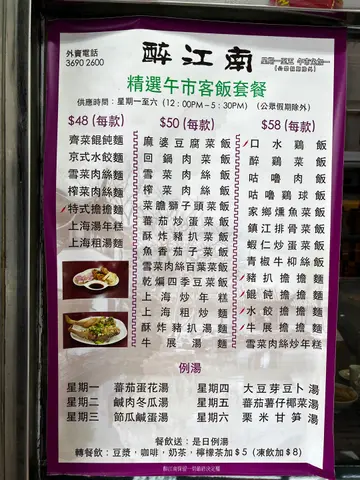 外賣電話
3690 2600
醉江南
星期一至五 午市免加一
(公眾假期除外)
精選午市客飯套餐
供應時間：星期一至六（12：00PM–5：30PM）（公眾假期除外）
$48 (每款)
薺菜餛飩麵
京式水餃麵
雪菜肉絲麵
榨菜肉絲麵
特式擔擔麵
上海湯年糕
上海粗湯麵
$50 (每款)
麻婆豆腐菜飯
回鍋肉菜飯
雪菜肉絲飯
榨菜肉絲飯
菜膽獅子頭菜飯
蕃茄炒蛋菜飯
酥炸豬扒菜飯
魚香茄子菜飯
雪菜肉絲百葉菜飯
乾煸四季豆菜飯
上海炒年糕
上海粗炒麵
酥炸豬扒湯麵
牛展湯麵
$58 (每款)
口水鷄飯
醉鷄菜飯
咕嚕肉飯
咕嚕鷄球飯
家鄉燻魚菜飯
鎮江排骨菜飯
蝦仁炒蛋菜飯
青椒牛柳絲飯
豬扒擔擔麵
餛飩擔擔麵
水餃擔擔麵
牛展擔擔麵
雪菜肉絲炒年糕
例湯
星期一 蕃茄蛋花湯
星期二 鹹肉冬瓜湯
星期三 節瓜鹹蛋湯
星期四 大豆芽豆卜湯
星期五 蕃茄薯仔椰菜湯
星期六 粟米甘筍湯
餐飲送：是日例湯
轉餐飲：豆漿，咖啡，奶茶，檸檬茶加$5（凍飲加$8）
醉江南保留一切最終決定權